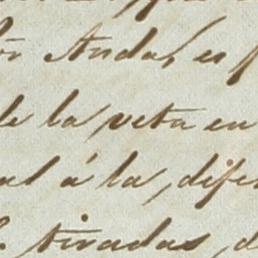 or Anda, es
de la veta en
al á la, dife
tiradas, d